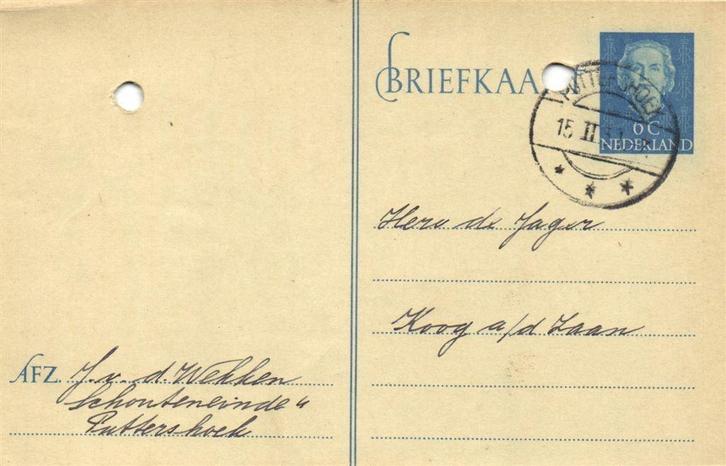 BRIEFKAA
6 C
NEDERLAND
PUTTERSHOEK
15 II
Here de Jager
Koog a/d Zaan
AFZ. J. v. d. Wekken
Schouteneinde "
Puttershoek